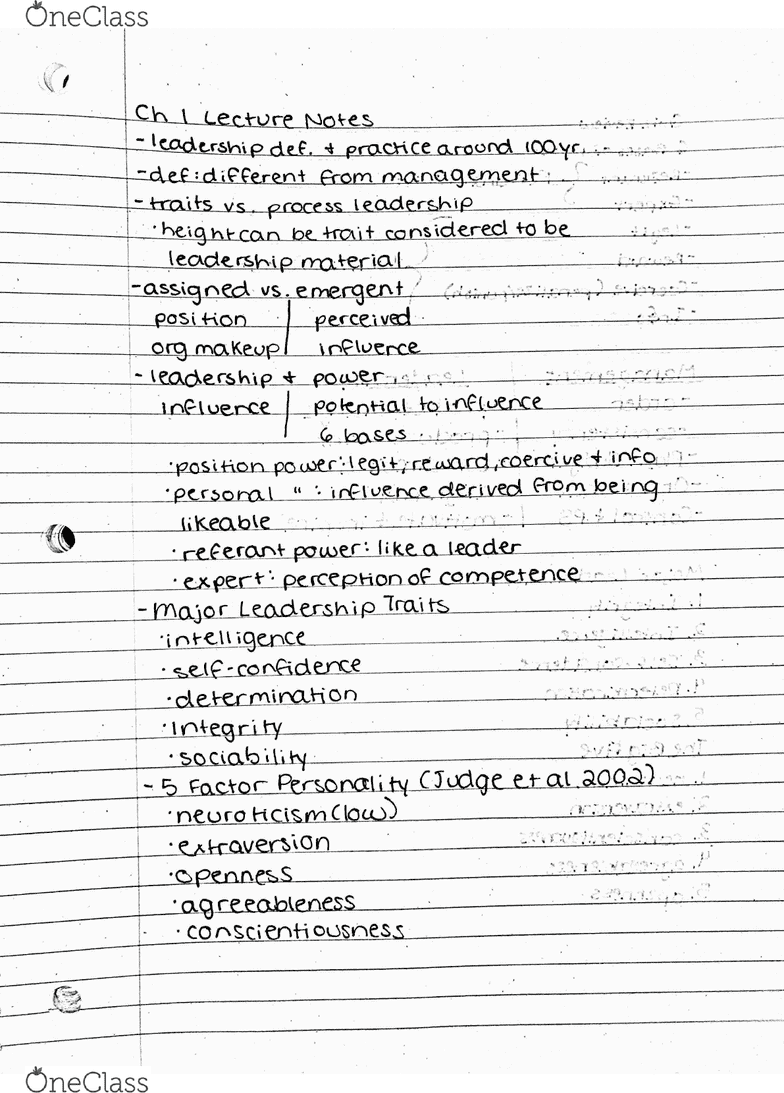 OneClass
Ch 1 Lecture Notes
- leadership def. + practice around 100yr.
- def: different from management
- traits vs. process leadership
· height can be trait considered to be
leadership material
- assigned vs. emergent
position | perceived
org makeup | influence
- leadership + power
influence | potential to influence
6 bases
· position power: legit, reward, coercive + info
· personal " : influence derived from being
likeable
· referant power: like a leader
· expert: perception of competence
- Major Leadership Traits
· intelligence
· self-confidence
· determination
· Integrity
· sociability
- 5 Factor Personality (Judge et al 2002)
· neuroticism (low)
· extraversion
· openness
· agreeableness
· conscientiousness
OneClass